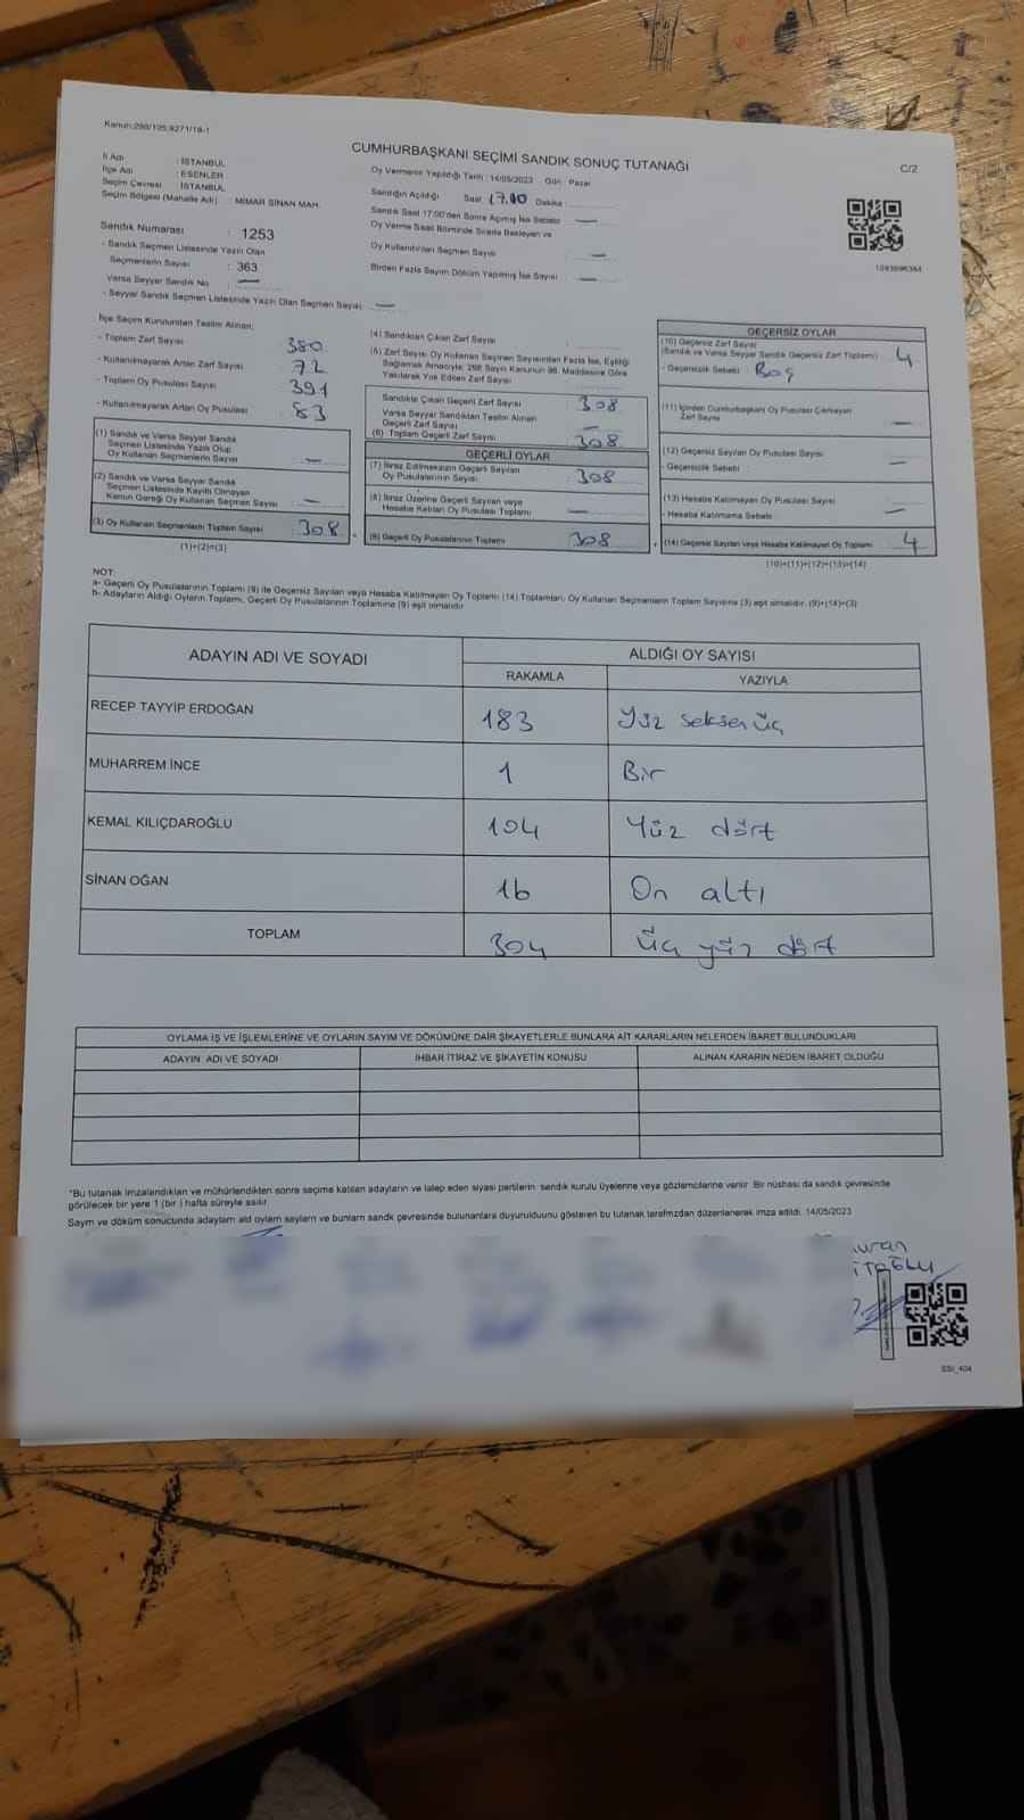 Kanun:298/125,6271/18-1
CUMHURBAŞKANI SEÇİMİ SANDIK SONUÇ TUTANAĞI
C/2
İl Adı : İSTANBUL
İlçe Adı : ESENLER
Seçim Çevresi : İSTANBUL
Seçim Bölgesi (Mahalle Adı) : MİMAR SİNAN MAH.
Oy Vermenin Yapıldığı Tarih : 14/05/2023 Gün : Pazar
Sandığın Açıldığı Saat 17.00 Dakika
Sandık Saat 17:00'den Sonra Açılmış İse Sebebi —
Oy Verme Saati Bitiminde Sırada Bekleyen ve
Oy Kullandırılan Seçmen Sayısı —
Birden Fazla Sayım Döküm Yapılmış İse Sayısı —
Sandık Numarası : 1253
- Sandık Seçmen Listesinde Yazılı Olan
Seçmenlerin Sayısı : 363
Varsa Seyyar Sandık No : —
- Seyyar Sandık Seçmen Listesinde Yazılı Olan Seçmen Sayısı: —
İlçe Seçim Kurulundan Teslim Alınan;
- Toplam Zarf Sayısı 380
- Kullanılmayarak Artan Zarf Sayısı 72
- Toplam Oy Pusulası Sayısı 391
- Kullanılmayarak Artan Oy Pusulası 83
(1) Sandık ve Varsa Seyyar Sandık
Seçmen Listesinde Yazılı Olup
Oy Kullanan Seçmenlerin Sayısı —
(2) Sandık ve Varsa Seyyar Sandık
Seçmen Listesinde Kayıtlı Olmayan
Kanun Gereği Oy Kullanan Seçmen Sayısı —
(3) Oy Kullanan Seçmenlerin Toplam Sayısı : 308
(1)+(2)=(3)
(4) Sandıktan Çıkan Zarf Sayısı
(5) Zarf Sayısı Oy Kullanan Seçmen Sayısından Fazla İse, Eşitliği
Sağlamak Amacıyla; 298 Sayılı Kanunun 98. Maddesine Göre
Yakılarak Yok Edilen Zarf Sayısı
Sandıkta Çıkan Geçerli Zarf Sayısı : 308
Varsa Seyyar Sandıktan Teslim Alınan
Geçerli Zarf Sayısı —
(6) Toplam Geçerli Zarf Sayısı 308
GEÇERLİ OYLAR
(7) İtiraz Edilmeksizin Geçerli Sayılan
Oy Pusulalarının Sayısı 308
(8) İtiraz Üzerine Geçerli Sayılan veya
Hesaba Katılan Oy Pusulası Toplamı —
(9) Geçerli Oy Pusulalarının Toplamı 308
GEÇERSİZ OYLAR
(10) Geçersiz Zarf Sayısı
(Sandık ve Varsa Seyyar Sandık Geçersiz Zarf Toplamı) 4
- Geçersizlik Sebebi : Boş
(11) İçinden Cumhurbaşkanı Oy Pusulası Çıkmayan
Zarf Sayısı —
(12) Geçersiz Sayılan Oy Pusulası Sayısı —
- Geçersizlik Sebebi
(13) Hesaba Katılmayan Oy Pusulası Sayısı —
- Hesaba Katılmama Sebebi
(14) Geçersiz Sayılan veya Hesaba Katılmayan Oy Toplamı 4
(10)+(11)+(12)+(13)=(14)
NOT:
a- Geçerli Oy Pusulalarının Toplamı (9) ile Geçersiz Sayılan veya Hesaba Katılmayan Oy Toplamı (14) Toplamları, Oy Kullanan Seçmenlerin Toplam Sayısına (3) eşit olmalıdır. (9)+(14)=(3)
b- Adayların Aldığı Oyların Toplamı, Geçerli Oy Pusulalarının Toplamına (9) eşit olmalıdır.
ADAYIN ADI VE SOYADI
ALDIĞI OY SAYISI
RAKAMLA YAZIYLA
RECEP TAYYİP ERDOĞAN 183 Yüz seksen üç
MUHARREM İNCE 1 Bir
KEMAL KILIÇDAROĞLU 104 Yüz dört
SİNAN OĞAN 16 On altı
TOPLAM 304 Üç yüz dört
OYLAMA İŞ VE İŞLEMLERİNE VE OYLARIN SAYIM VE DÖKÜMÜNE DAİR ŞİKAYETLERLE BUNLARA AİT KARARLARIN NELERDEN İBARET BULUNDUKLARI
ADAYIN ADI VE SOYADI İHBAR İTİRAZ VE ŞİKAYETİN KONUSU ALINAN KARARIN NEDEN İBARET OLDUĞU
*Bu tutanak imzalandıktan ve mühürlendikten sonra seçime katılan adayların ve talep eden siyasi partilerin sandık kurulu üyelerine veya gözlemcilerine verilir. Bir nüshası da sandık çevresinde
görülecek bir yere 1 (bir) hafta süreyle asılır.
Sayım ve döküm sonucunda adayların aldı oyların sayıların ve bunların sandık çevresinde bulunanlara duyurulduunu gösteren bu tutanak tarafmzdan düzenlenerek imza edildi. 14/05/2023
SSI_404